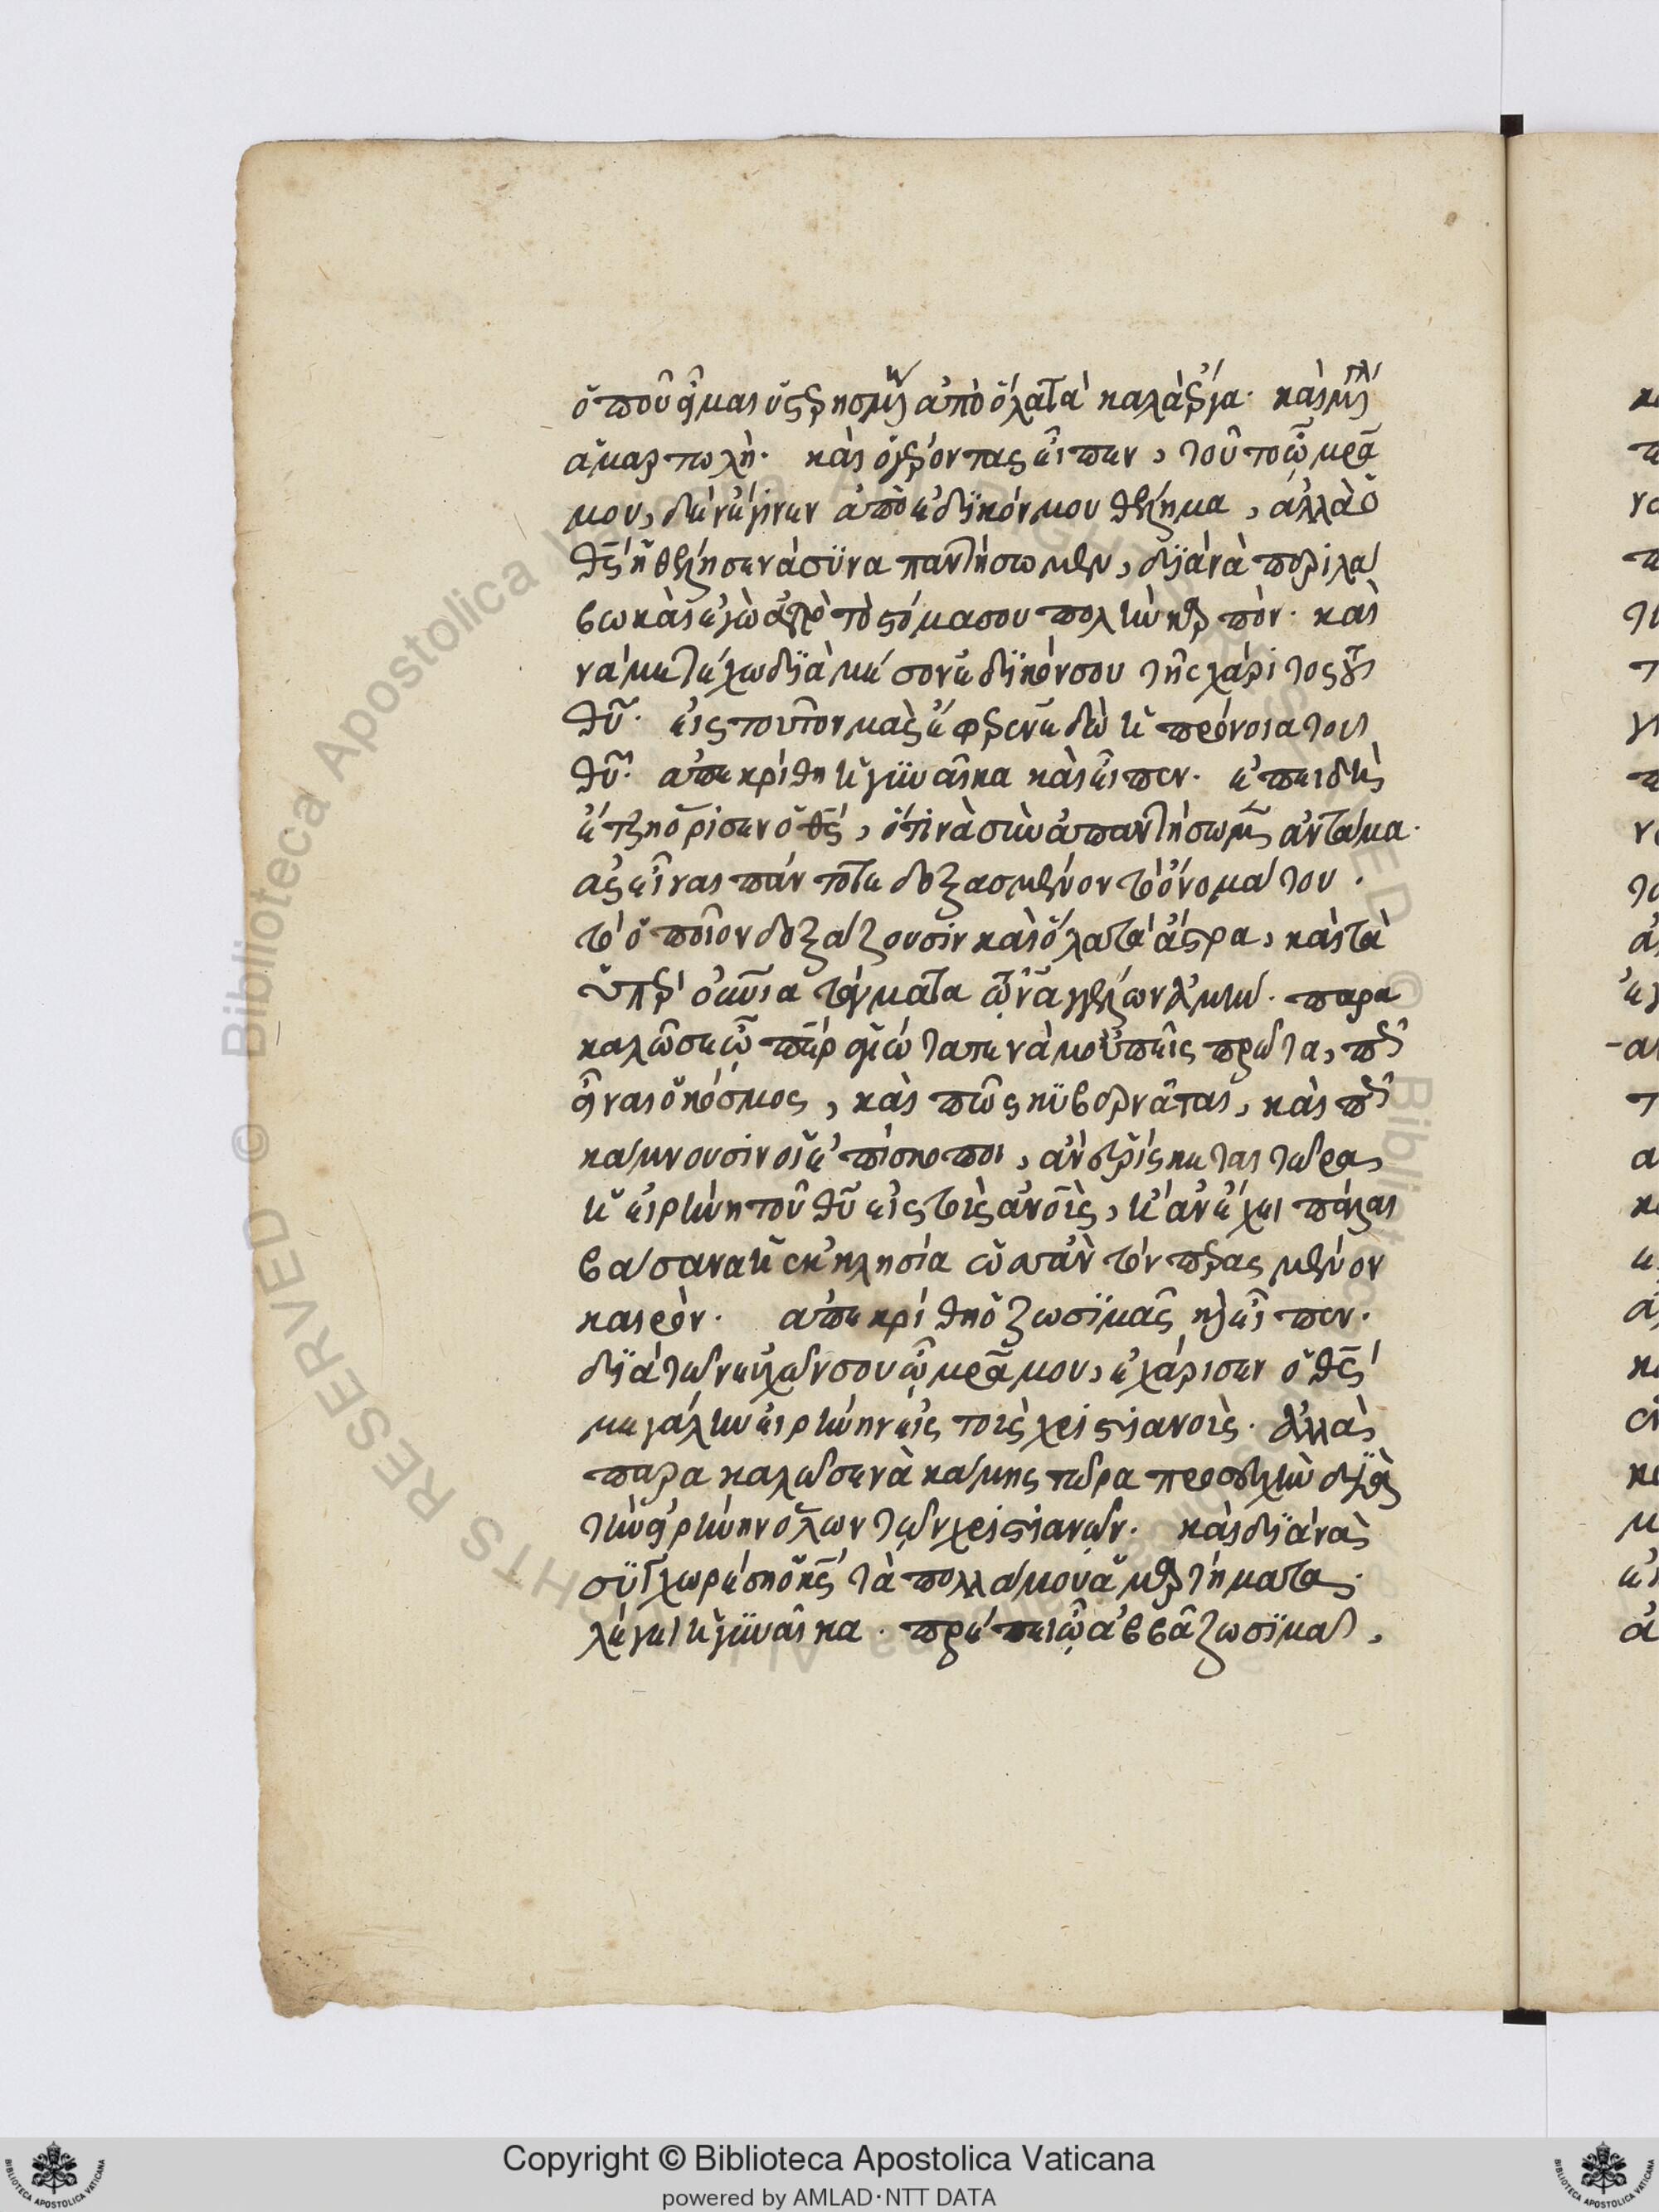 ὁποῦ εἶμαι ὑστερημένη ἀπὸ ὅλα τὰ καλὰ ἔργα· καὶ
ἁμαρτωλή· καὶ εἶπεν, τοῦτο ὦ κυρά
μου, δὲν ἔγινεν ἀπὸ ἐδικόν μου θέλημα, ἀλλὰ ὁ
θς ἠθέλησε νὰ συναπαντήσωμεν, διὰ νὰ περιλά
βω καὶ ἐγὼ ἀπὸ τὸ στόμα σου πολὺν καρπόν· καὶ
νὰ μετέχω διὰ μέσον ἐδικόν σου τῆς χάριτος τοῦ
θῦ· εἰς τοῦτον μᾶς ἔφερεν ἐδῶ ἡ πρόνοια τοῦ
θῦ· ἀπεκρίθη ἡ γυναῖκα καὶ εἶπεν· ἐπειδὴ
ἔτζη ὅρισεν ὁ θς, ὅτι νὰ συναπαντήσωμεν ἀντάμα·
ἂς εἶναι πάντοτε δοξασμένον τὸ ὄνομά του·
τὸ ὁποῖον δοξάζουσιν καὶ ὅλα τὰ ἄστρα, καὶ τὰ
ὑπερουράνια τάγματα τῶν ἀγγέλων ἀμήν· παρα
καλῶ σε ὦ πὲρ τιμιώτατε νὰ μοῦ πεῖς πρῶτα, πῶς
εἶναι ὁ κόσμος, καὶ πῶς κυβερνᾶται, καὶ πῶς
κάμνουσιν οἱ ἐπίσκοποι, ἂν εὑρίσκεται τώρα
ἡ εἰρήνη τοῦ θῦ εἰς τοὺς ἀνους, ἢ ἂν ἔχει πάλαι
βάσανα ἡ ἐκκλησία ὡσὰν τὸν περασμένον
καιρόν· ἀπεκρίθη ὁ ζωσιμᾶς καὶ εἶπεν·
διὰ τῶν εὐχῶν σου ὦ κυρά μου, ἐχάρισεν ὁ θς
μεγάλην εἰρήνην εἰς τοὺς χριστιανούς· ἀλλὰ
παρακαλῶ σε νὰ κάμης τώρα προσευχὴν διὰ
τὴν εἰρήνην ὅλων τῶν χριστιανῶν· καὶ διὰ νὰ
συγχωρέση ὁ κς τὰ πολλά μου ἁμαρτήματα·
λέγει ἡ γυναῖκα· πρέπει ὦ ἀββᾶ ζωσιμᾶ,
Copyright © Biblioteca Apostolica Vaticana
powered by AMLAD·NTT DATA